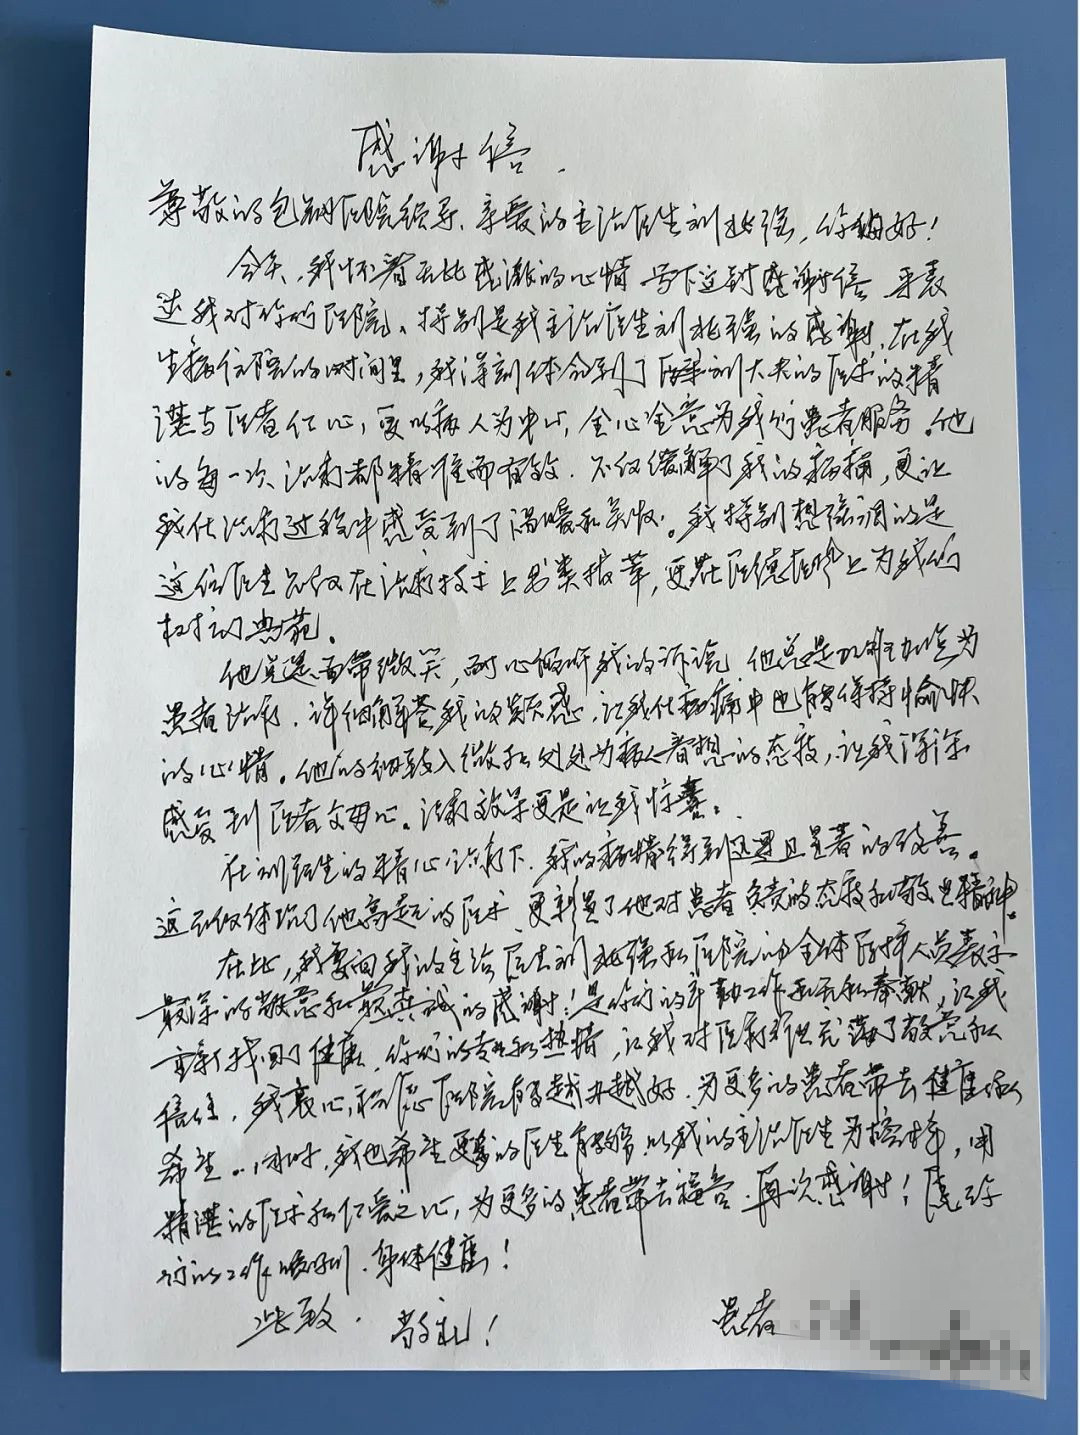 感谢信.
尊敬的包钢医院领导、亲爱的主治医生刘兆强，你们好！
今天，我怀着无比感激的心情写下这封感谢信，来表
达我对你们医院、特别是我主治医生刘兆强的感谢，在我
生病住院的时间里，我深刻体会到了刘大夫的医术的精
湛与医者仁心，更以病人为中心，全心全意为我们患者服务。他
的每一次治疗都精准而有效，不仅缓解了我的病痛，更让
我在治疗过程中感受到了温暖和关怀。我特别想强调的是
这位医生不仅在治疗技术上出类拔萃，更在医德医风上为我们
树立了典范。
他总是面带微笑，耐心倾听我的诉说，他总是为
患者治疗，详细解答我的疑惑，让我在病痛中也能够保持愉快
的心情。他的细致入微和处处为病人着想的态度，让我深深
感受到医者父母心。治疗效果更是让我惊喜。
在刘医生的精心治疗下，我的病情得到迅速且显著的改善。
这不仅体现了他高超的医术，更彰显了他对患者负责的态度和敬业精神。
在此，我要向我的主治医生刘兆强和医院的全体医护人员表示
最深的敬意和最真诚的感谢！是你们的辛勤工作和无私奉献，让我
重新找回了健康，你们的专业和热情，让我对医疗充满了敬意和
信任，我衷心祝愿医院能够越办越好，为更多的患者带去健康和
希望。同时，我也希望更多的医生能够以我的主治医生为榜样，用
精湛的医术和仁爱之心，为更多的患者带去福音。再次感谢！愿你
们的工作顺利，身体健康！
此致. 敬礼！
患者